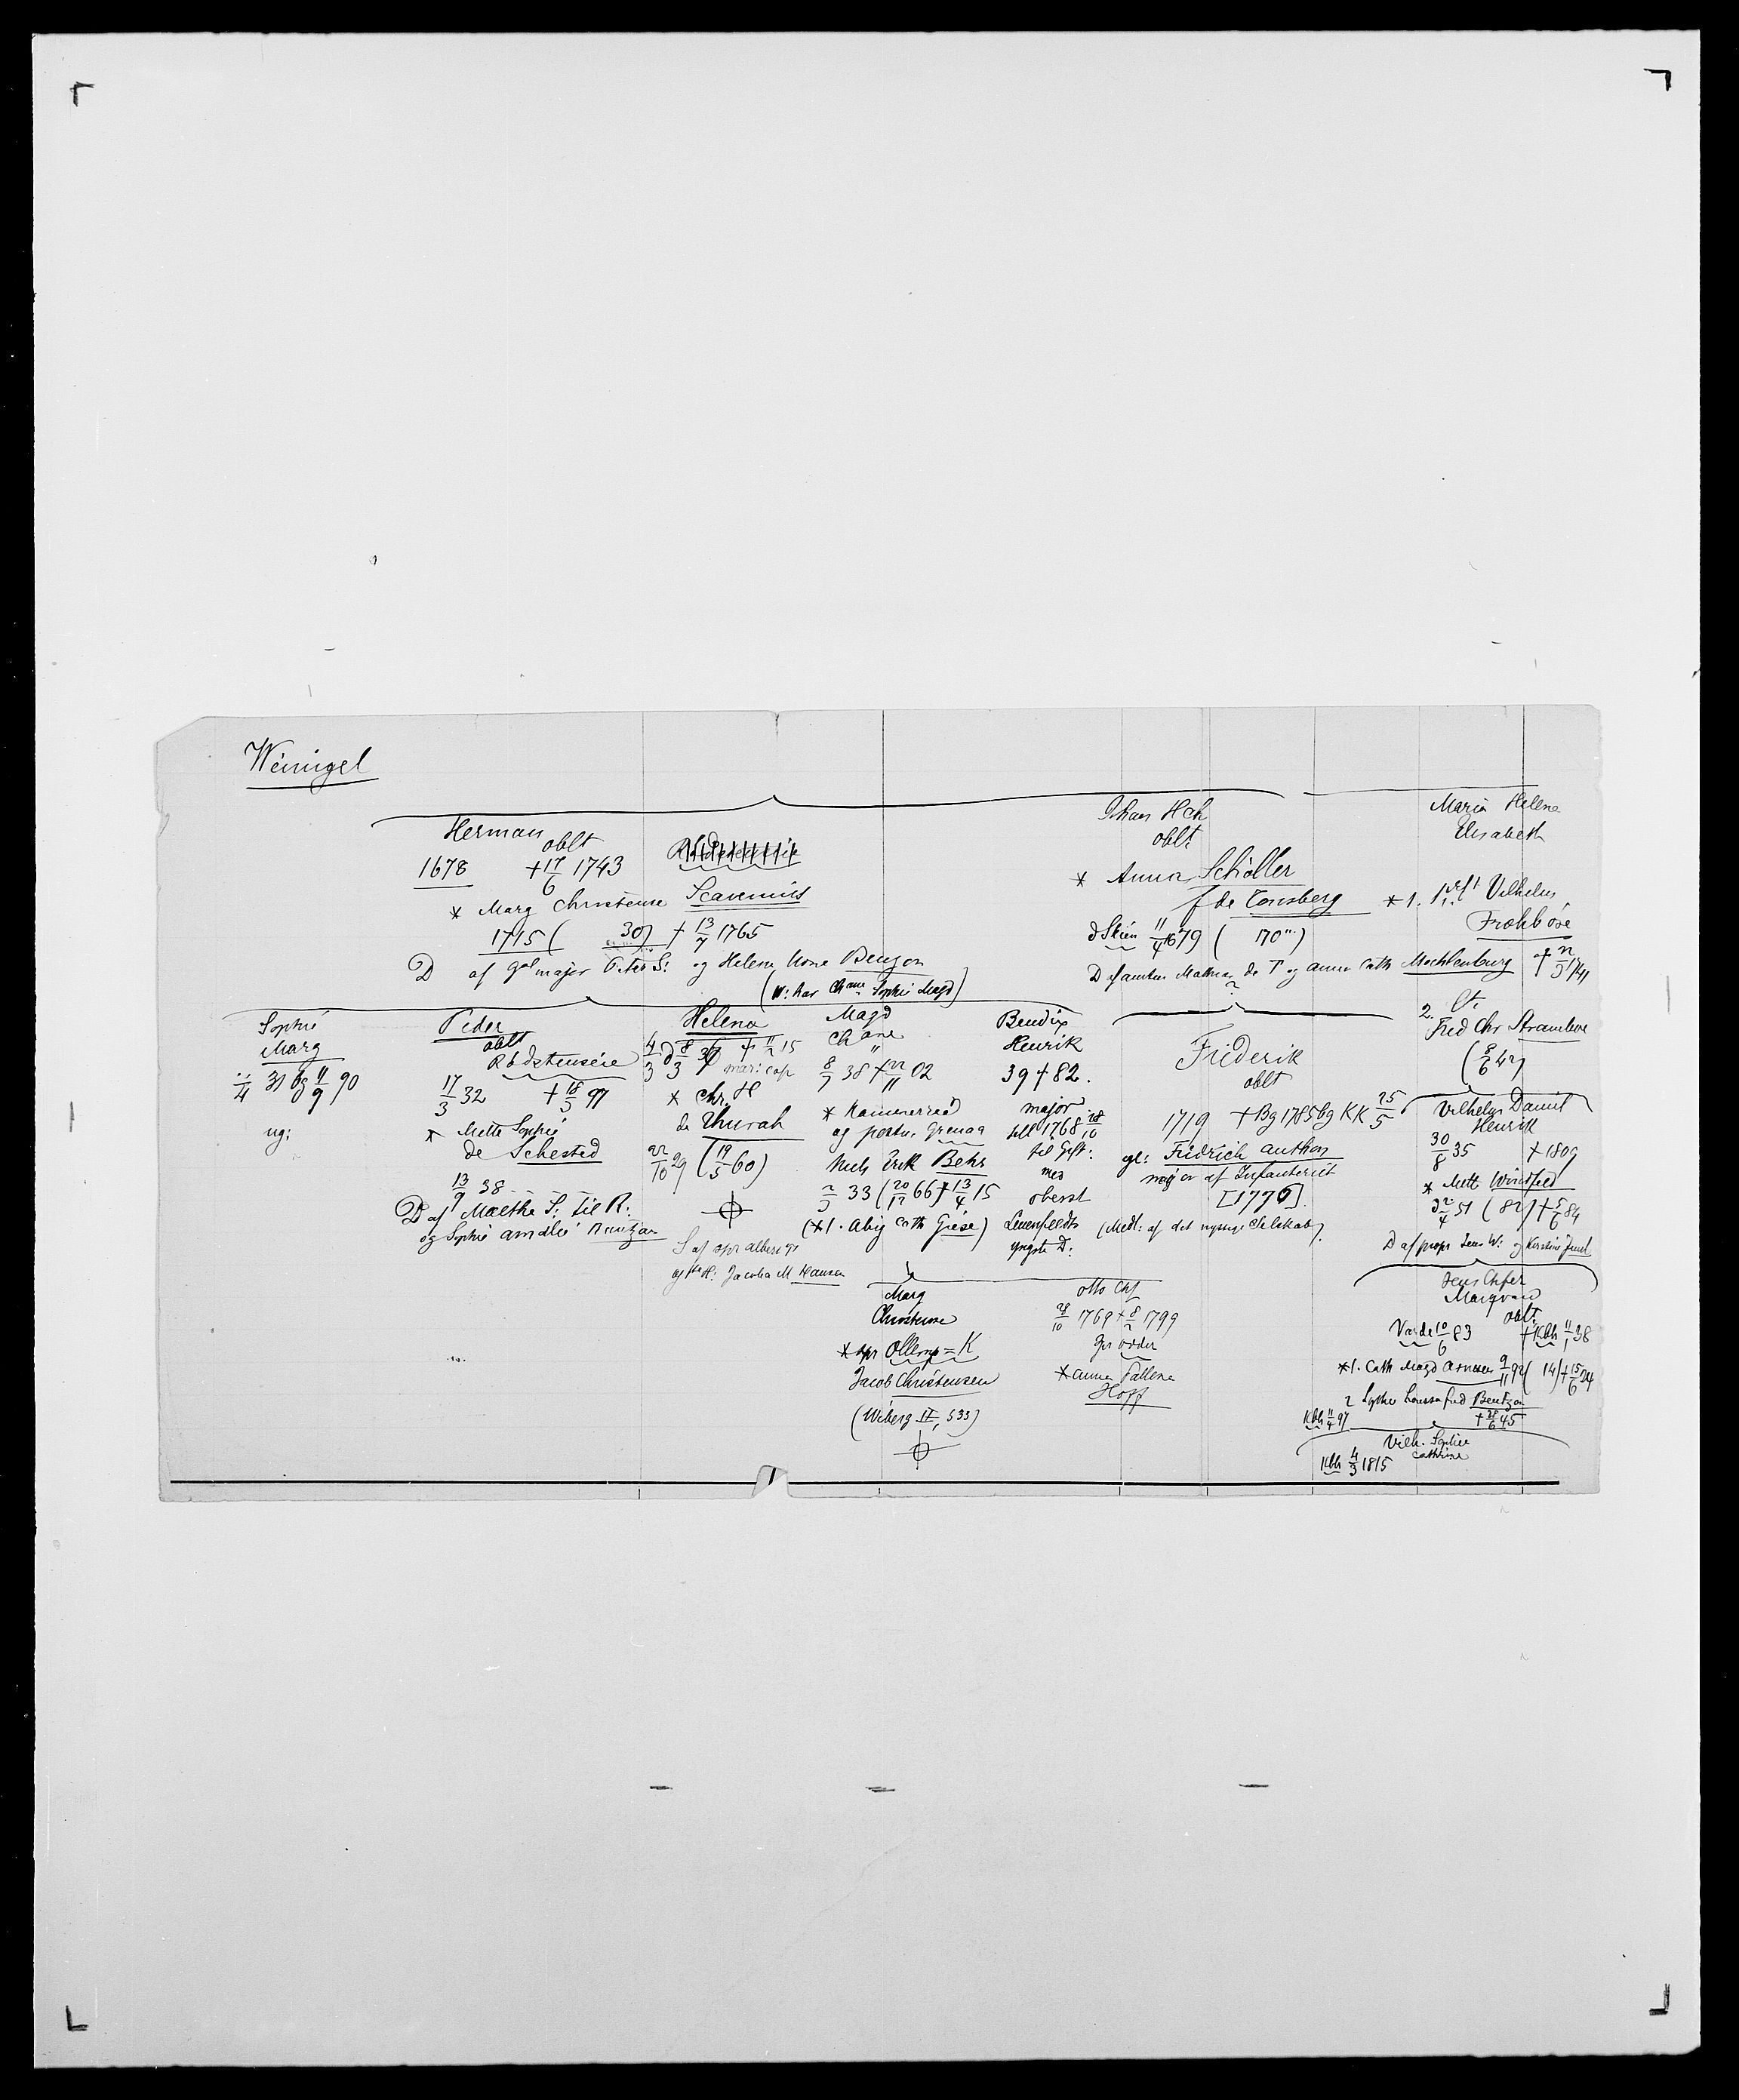 Weinigel
Herman
oblt
1678 † 17/6 1743
* Marg Christense Scavenius
1715 ( 30) † 13/7 1765
D af major Peter S: og Helena None Benzon
Sophie Magd)
Johan Hch
oblt
* Anna Schøller
f de Tonsberg
Skien 11/4 1679 ( 170"')
D af Mathias de T og Anna Cath Mechlenburg
Maria Helene
Elisabeth
* 1. Vilhelm
Frohbøse
2. Lt.
Fred Chr
(8/6 42)
Sophie
Marg
31 bg 11/9 90
ug:
Peder
oblt
Rodstenseie
17/3 32 † 18/3 97
* Mette Sophie
de Sehested
13/9 38
D af Malthe S: til R:
og Sophie Amalie
Helena
* Chr. H
de Thurah
22/10 29 (19/5 60)
S af Albert
og H: Jacoba M Hansen
Magd
Chane
8/7 38 † 22/11 02
* Kammerraad
og postm. Grenaa
Niels Erik Behr
33 (20/12 66) † 13/4 15
(* 1. Abig Cath Giese)
Bendix
Henrik
39 † 82.
major
till 1768 28/10
til Gift:
med
oberst
Leuenfeldts
yngste D:
Friderik
oblt
1719 † Bg 1785 bg KK 25/5
gl: Fredrich Anthon
major af Infanteriet
[1776]
(Medl: af det nyttige Selskab)
Vilhelm Daniel
Henrik
30/8 35 † 1809
* Mette Winsfeld
51 (82) † 5/6 84
D af propr Jens W: og Kirstine Juul
Marg
Christense
* Ollerup = K
Jacob Christensen
(Wiberg II, 533)
Otto Chf
28/10 1769 † 8/2 1799
Odder
* Anna Pallene
Hoff
Jens Chfer
Marqvard
oblt.
Varde 10/6 83 † Kbh 11/1 38
* 1. Cath Magd 9/11 92 ( 14) † 15/6 24
2 Sophie Fred Bentzon
Kbh 11/4 97 † 28/6 45
Vilh. Sophie
Cathrine
Kbh 4/3 1815